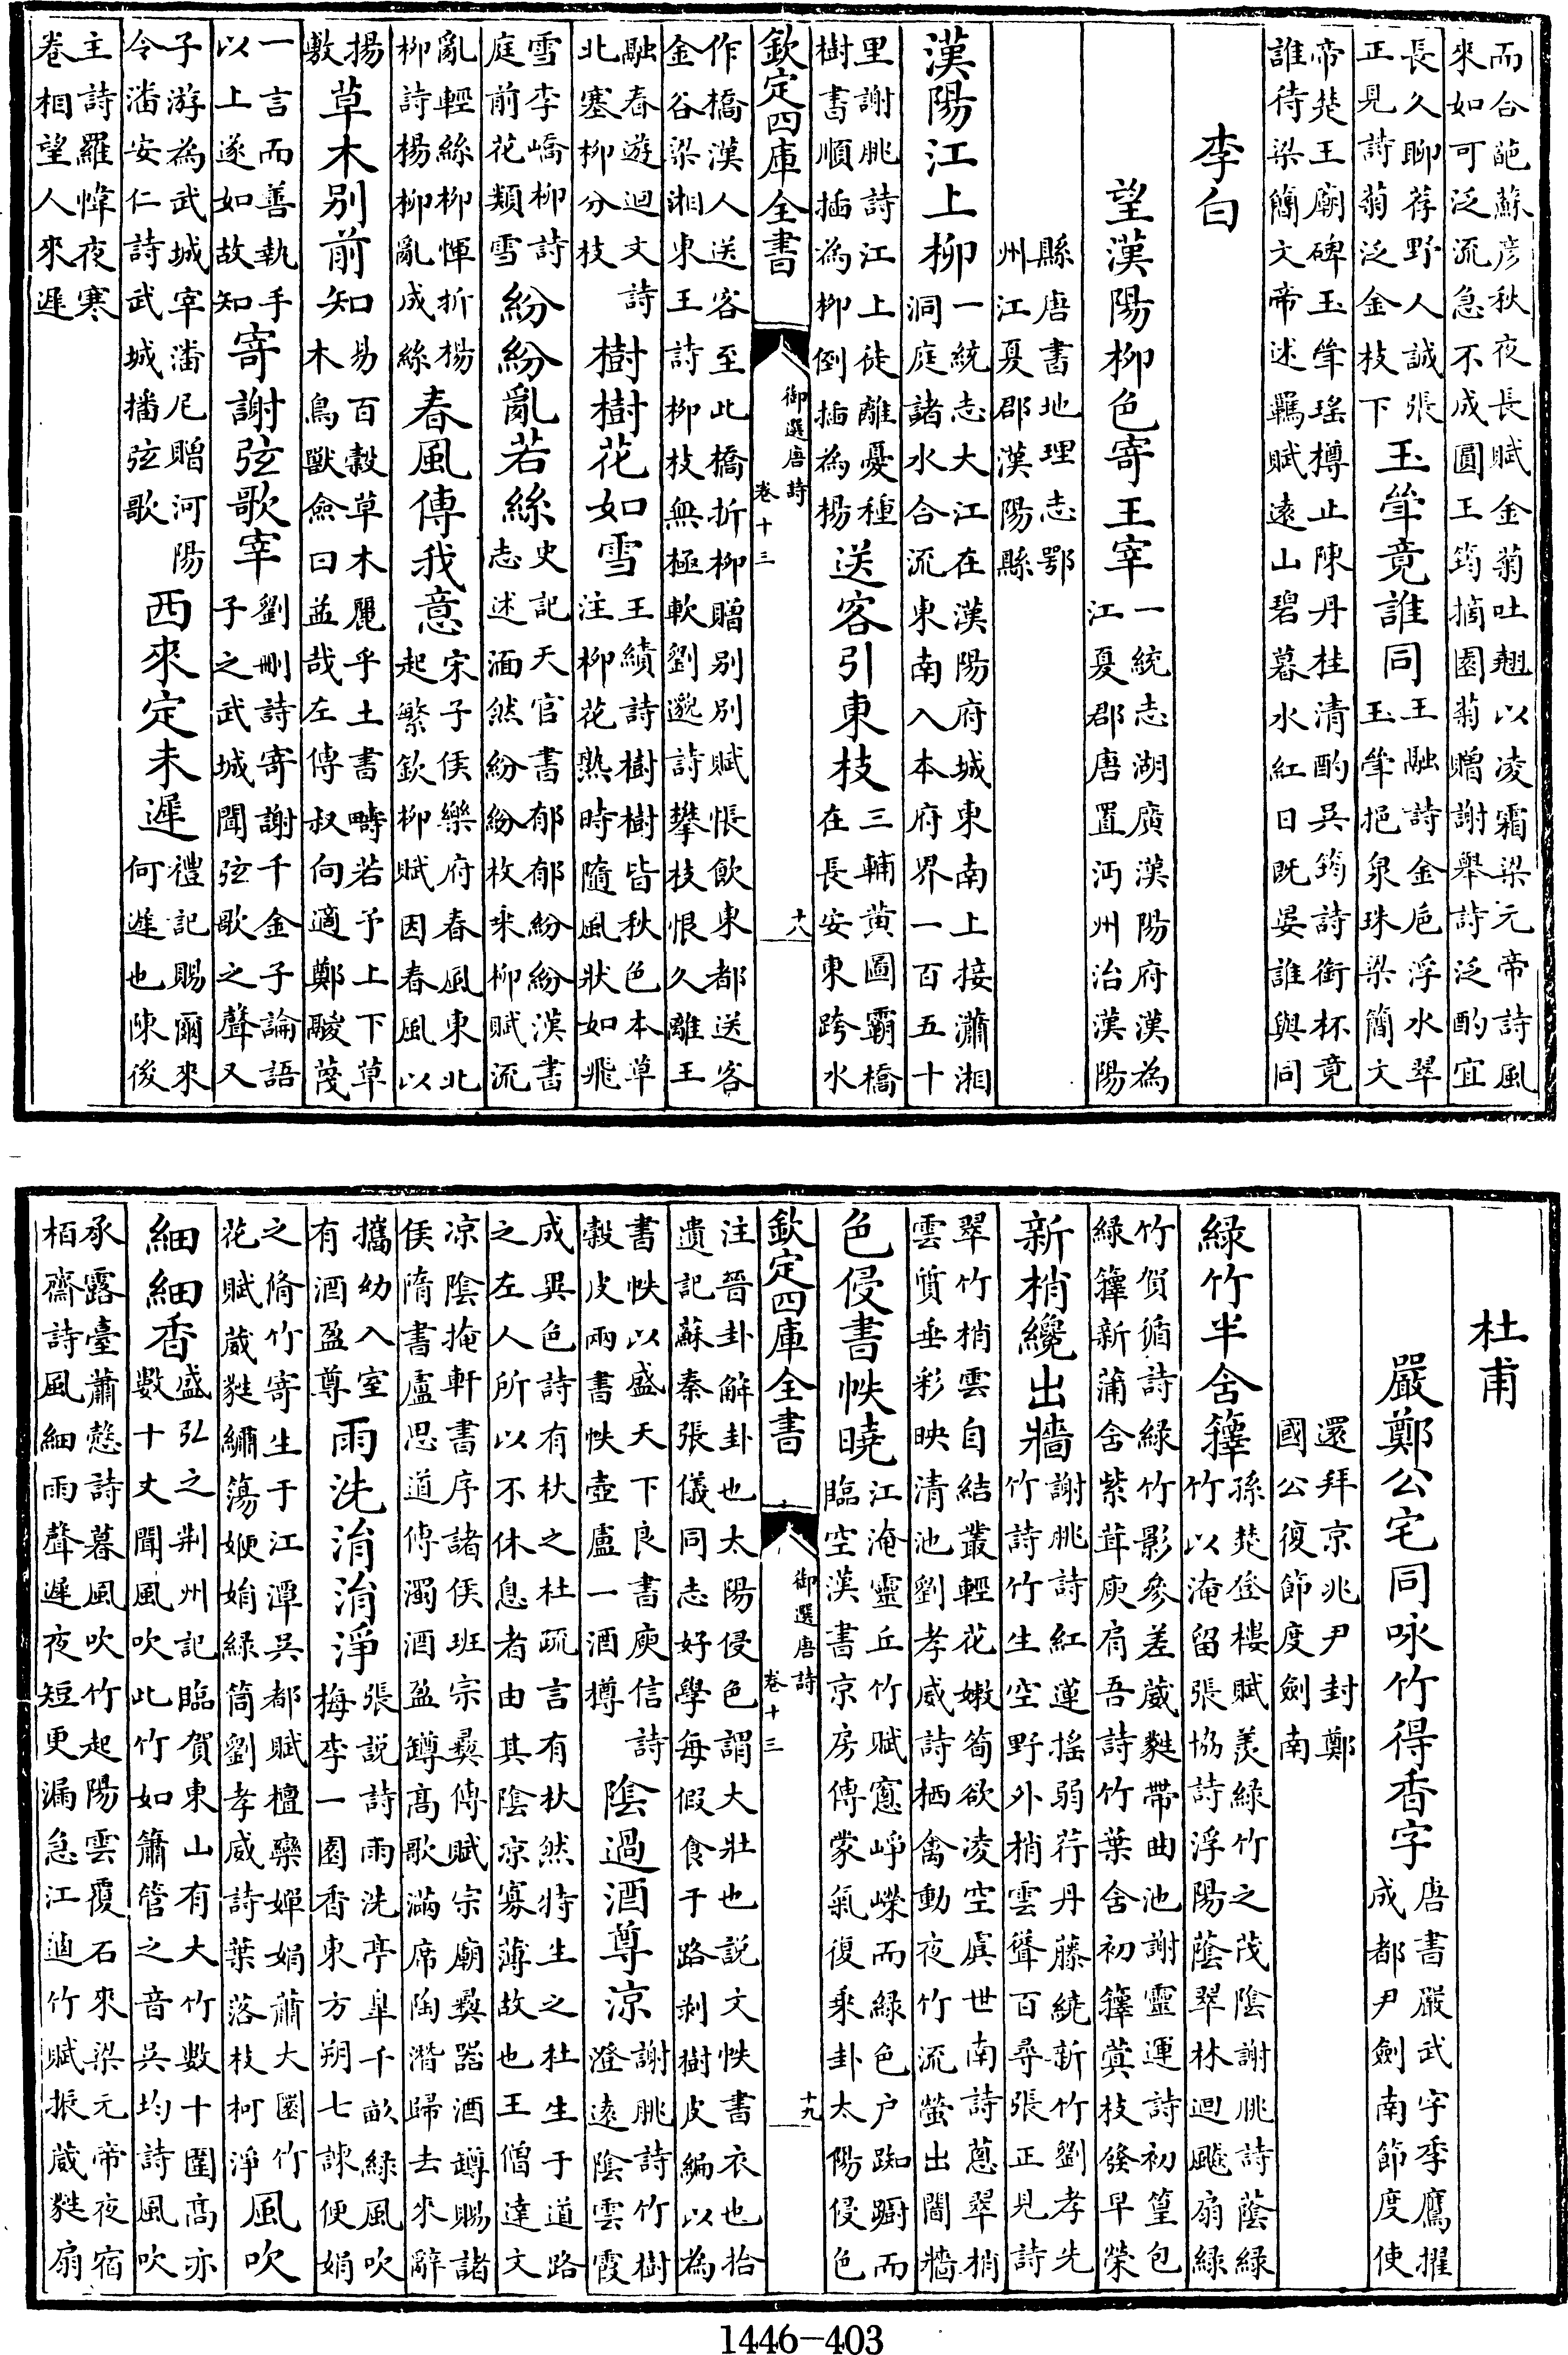 而合葩蘇彦秋夜長賦金菊吐翹以凌霜梁元帝詩風
來如可泛流急不成圓王筠摘園菊贈謝舉詩泛酌宜
長久聊荐野人誠張
正見詩菊泛金枝下
玉斝竟誰同
王融詩金巵浮水翠
玉斝挹泉珠梁簡文
帝楚王廟碑玉斝瑤樽止陳丹桂清酌吳筠詩銜杯竟
誰待梁簡文帝述羈賦遠山碧暮水紅日既晏誰與同
李白
望漢陽柳色寄王宰
一統志湖廣漢陽府漢為
江夏郡唐置沔州治漢陽
縣唐書地理志鄂
州江夏郡漢陽縣
漢陽江上柳
一統志大江在漢陽府城東南上接瀟湘
洞庭諸水合流東南入本府界一百五十
里謝朓詩江上徒離憂種
樹書順插為柳倒插為楊
送客引東枝
三輔黄圖霸橋
在長安東跨水
欽定四庫全書
御選唐詩
卷十三
十八
作橋漢人送客至此橋折柳贈别别賦悵飲東都送客
金谷梁湘東王詩柳枝無極軟劉邈詩攀枝恨久離王
融春遊迴文詩
北塞柳分枝
樹樹花如雪
王績詩樹樹皆秋色本草
注柳花熟時隨風狀如飛
雪李嶠柳詩
庭前花類雪
紛紛亂若絲
史記天官書郁郁紛紛漢書
志述湎然紛紛枚乘柳賦流
亂輕絲柳惲折楊
柳詩楊柳亂成絲
春風傳我意
宋子侯樂府春風東北
起繁欽柳賦因春風以
揚
敷
草木别前知
易百穀草木麗乎土書疇若予上下草
木鳥獸僉曰益哉左傳叔向適鄭鬷蔑
一言而善執手
以上遂如故知
寄謝弦歌宰
劉删詩寄謝千金子論語
子之武城聞弦歌之聲又
子游為武城宰潘尼贈河陽
令潘安仁詩武城播弦歌
西來定未遲
禮記賜爾來
何遲也陳後
主詩羅幃夜寒
卷相望人來遲
杜甫
嚴鄭公宅同咏竹得香字
唐書嚴武字季鷹擢
成都尹劍南節度使
還拜京兆尹封鄭
國公復節度劍南
綠竹半含籜
孫楚登樓賦羨綠竹之茂陰謝朓詩蔭綠
竹以淹留張協詩浮陽蔭翠林迴飈扇綠
竹賀循詩綠竹影參差葳蕤帶曲池謝靈運詩初篁包
綠籜新蒲含紫茸庾肩吾詩竹葉含初籜蓂枝發早榮
新梢纔出牆
謝朓詩紅蓮搖弱荇丹藤繞新竹劉孝先
竹詩竹生空野外梢雲聳百尋張正見詩
翠竹梢雲自結叢輕花嫩筍欲凌空虞世南詩蔥翠梢
雲質垂彩映清池劉孝威詩栖禽動夜竹流螢出闇牆
色侵書帙曉
江淹靈丘竹賦窻崢嶸而綠色户踟躕而
臨空漢書京房傳蒙氣復乘卦太陽侵色
欽定四庫全書
御選唐詩
卷十三
十九
注晉卦解卦也太陽侵色謂大壯也説文帙書衣也拾
遺記蘇秦張儀同志好學每假食于路剥樹皮編以為
書帙以盛天下良書庾信詩
穀皮兩書帙壺盧一酒樽
陰過酒尊涼
謝朓詩竹樹
澄遠陰雲霞
成異色詩有杕之杜疏言有杕然特生之杜生于道路
之左人所以不休息者由其陰凉寡薄故也王僧達文
凉陰掩軒書序諸侯班宗彝傳賦宗廟彝器酒罇賜諸
侯隋書盧思道傳濁酒盈罇高歌滿席陶潛歸去來辭
攜幼入室
有酒盈尊
雨洗涓涓淨
張説詩雨洗亭皐千畝綠風吹
梅李一園香東方朔七諫便娟
之脩竹寄生于江潭吳都賦檀欒嬋娟蕭大圜竹
花賦葳蕤繡簜㛹娟綠筒劉孝威詩葉落枝柯淨
風吹
細細香
盛弘之荆州記臨賀東山有大竹數十圍高亦
數十丈聞風吹此竹如簫管之音吳均詩風吹
承露臺蕭慤詩暮風吹竹起陽雲覆石來梁元帝夜宿
栢齋詩風細雨聲遲夜短更漏急江逌竹賦振葳蕤扇
1446-403